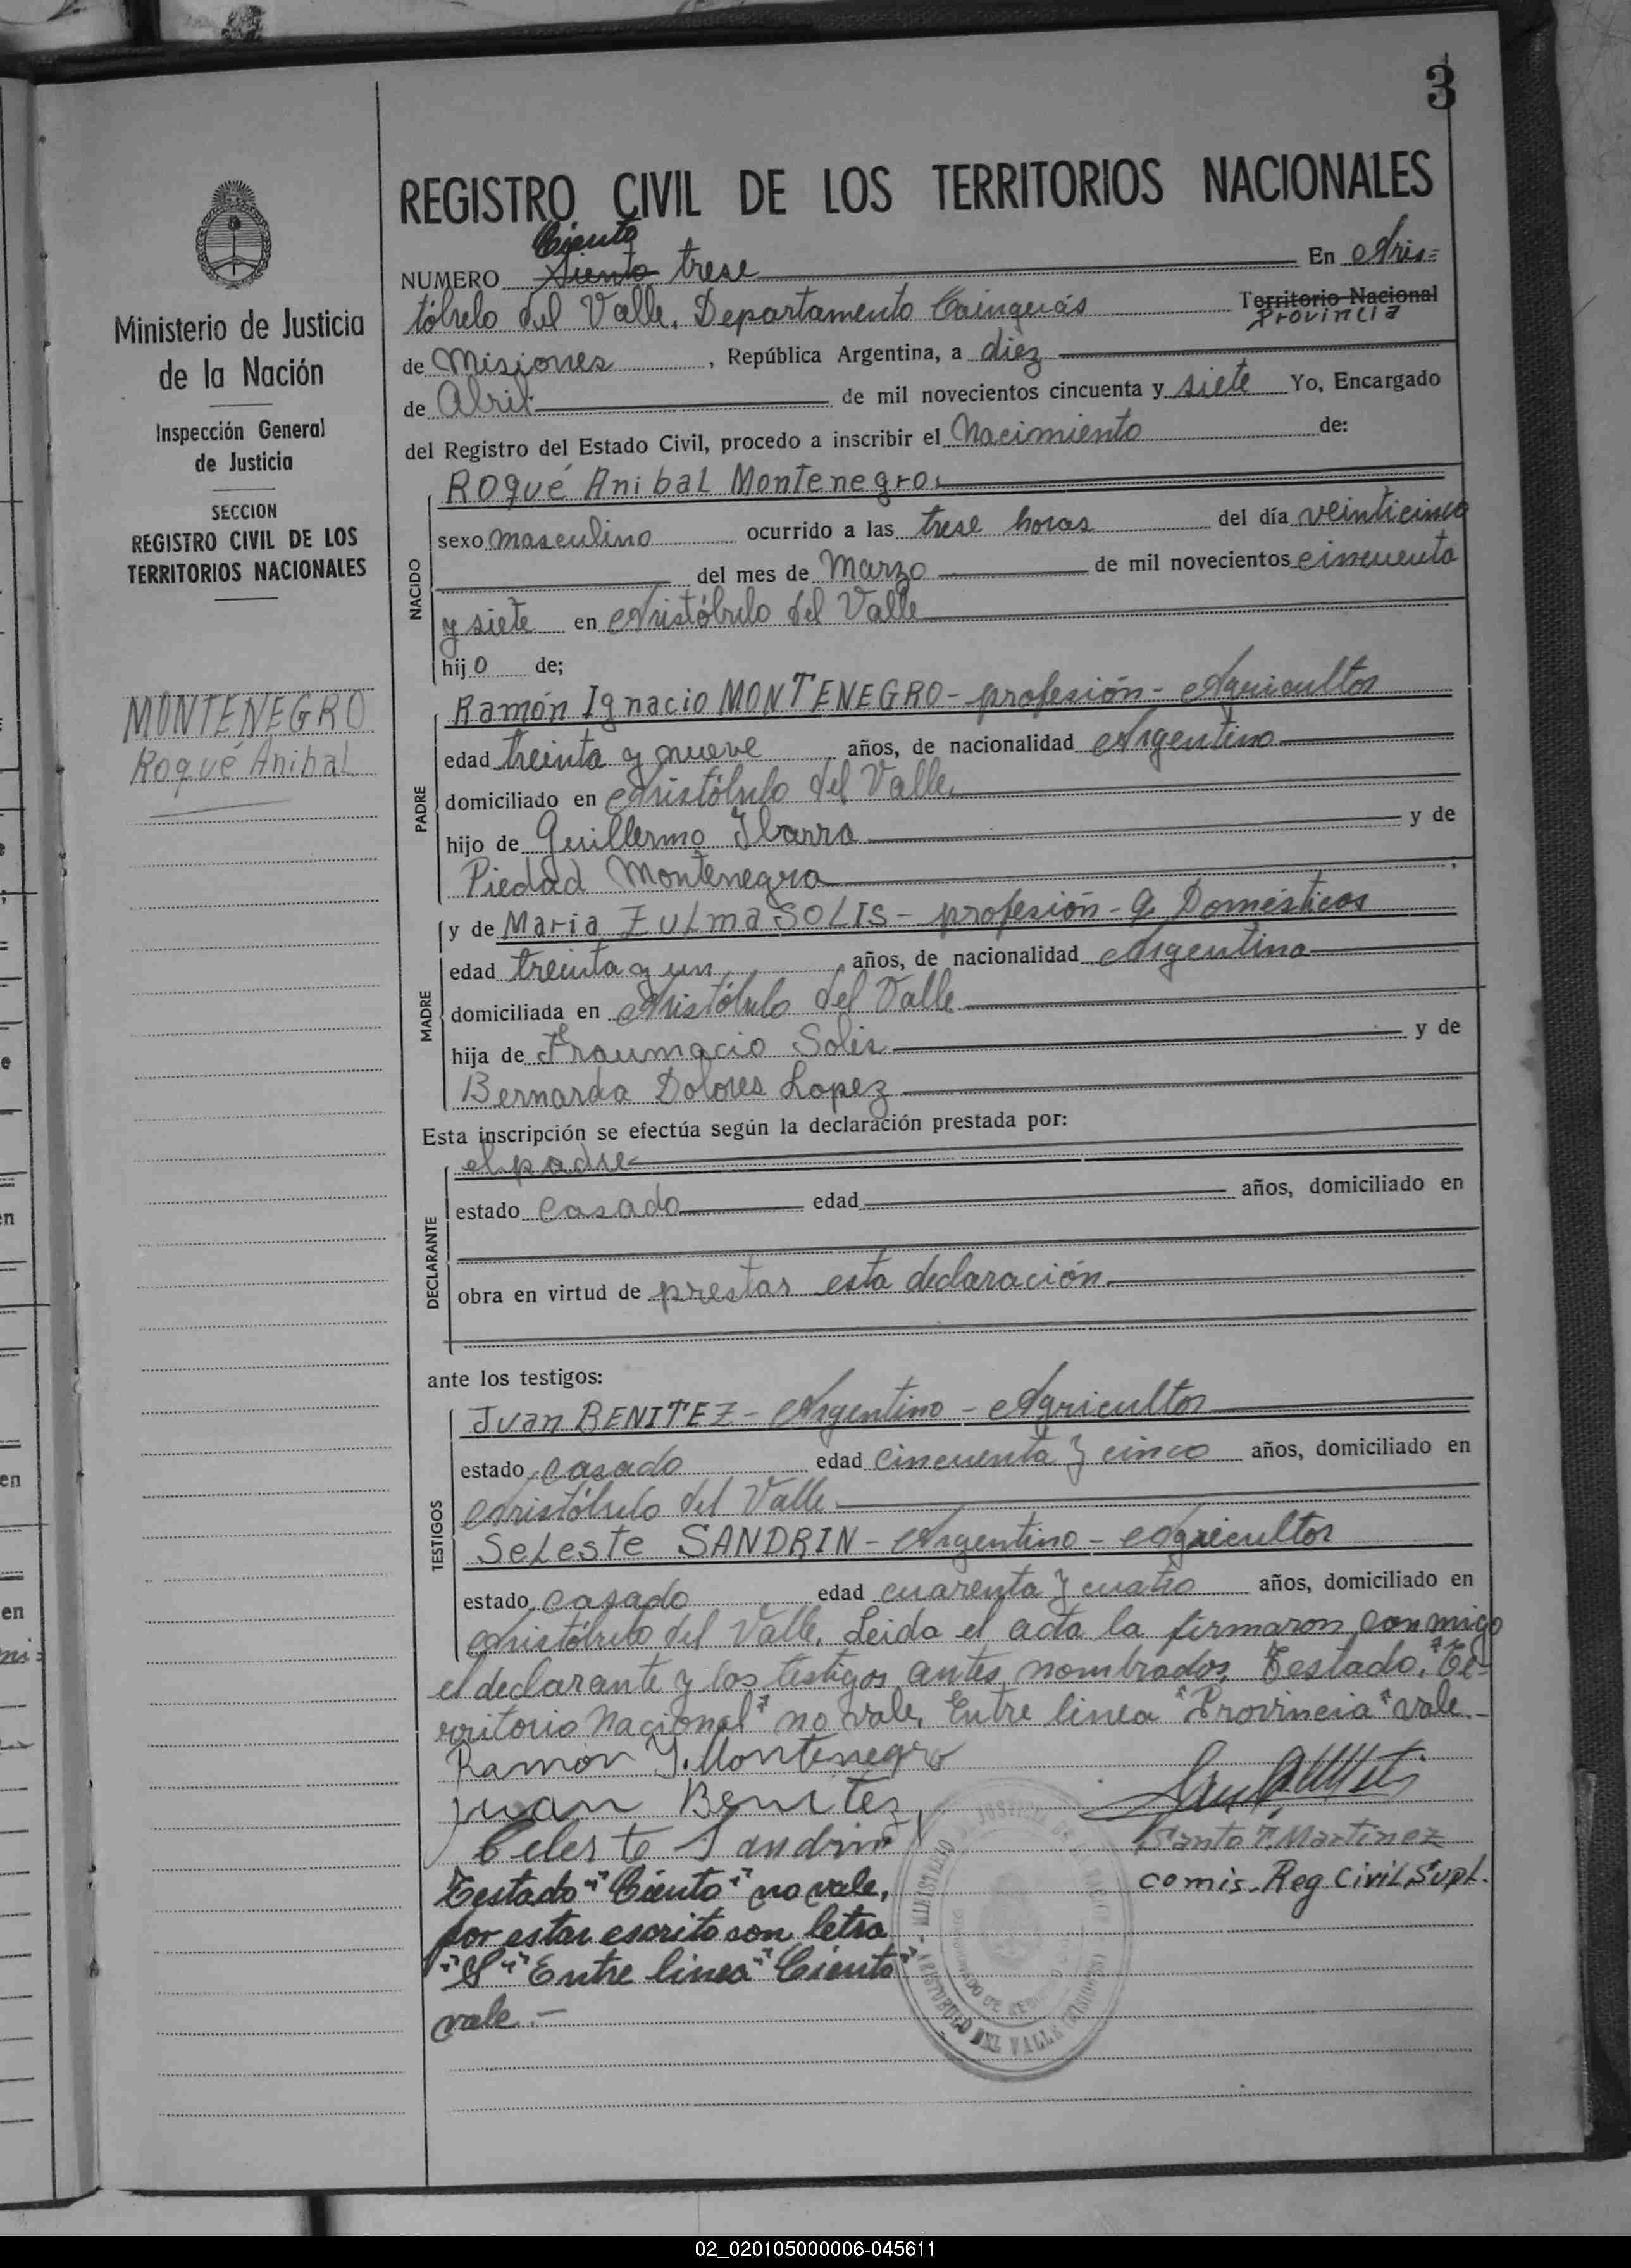 3
Ministerio de Justicia
de la Nación
Inspección General
de Justicia
SECCION
REGISTRO CIVIL DE LOS
TERRITORIOS NACIONALES
MONTENEGRO
Roqué Anibal
REGISTRO CIVIL DE LOS TERRITORIOS NACIONALES
Ciento
NUMERO Siento trese En Aris=
tóbulo del Valle, Departamento Cainguás Territorio Nacional
Provincia
de Misiones, República Argentina, a diez
de Abril de mil novecientos cincuenta y siete Yo, Encargado
del Registro del Estado Civil, procedo a inscribir el Nacimiento de:
Roqué Anibal Montenegro.
NACIDO
sexo masculino ocurrido a las trese horas del día veinticinco
del mes de Marzo de mil novecientos cincuenta
y siete en Aristóbulo del Valle
hijo de;
PADRE
Ramón Ignacio MONTENEGRO - profesión - Agricultor
edad treinta y nueve años, de nacionalidad Argentino
domiciliado en Aristóbulo del Valle,
hijo de Guillermo Ibarra y de
Piedad Montenegro ;
MADRE
y de Maria ZULMA SOLIS - profesión - Q. Domésticos
edad treinta y un años, de nacionalidad Argentina
domiciliada en Aristóbulo del Valle
hija de Fraumacio Solis y de
Bernarda Dolores Lopez
Esta inscripción se efectúa según la declaración prestada por:
DECLARANTE
el padre
estado casado edad años, domiciliado en
obra en virtud de prestar esta declaración.
ante los testigos:
TESTIGOS
Juan BENITEZ - Argentino - Agricultor
estado casado edad cincuenta y cinco años, domiciliado en
Aristóbulo del Valle
SeLeste SANDRIN - Argentino - Agricultor
estado casado edad cuarenta y cuatro años, domiciliado en
Aristóbulo del Valle. Leida el acta la firmaron conmigo
el declarante y los testigos antes nombrados. Testado, "Te-
rritorio Nacional" no vale, Entre linea "Provincia" vale.-
Ramón I. Montenegro
Juan Benitez
Celeste Sandrin
Santo F. Martinez
comis. Reg Civil Supl.
Testado "Ciento" no vale,
por estar escrito con letra
"S" Entre linea "Ciento"
vale.-
MINISTERIO DE JUSTICIA DE LA NACION
ARISTOBULO DEL VALLE (MISIONES)
02_020105000006-045611